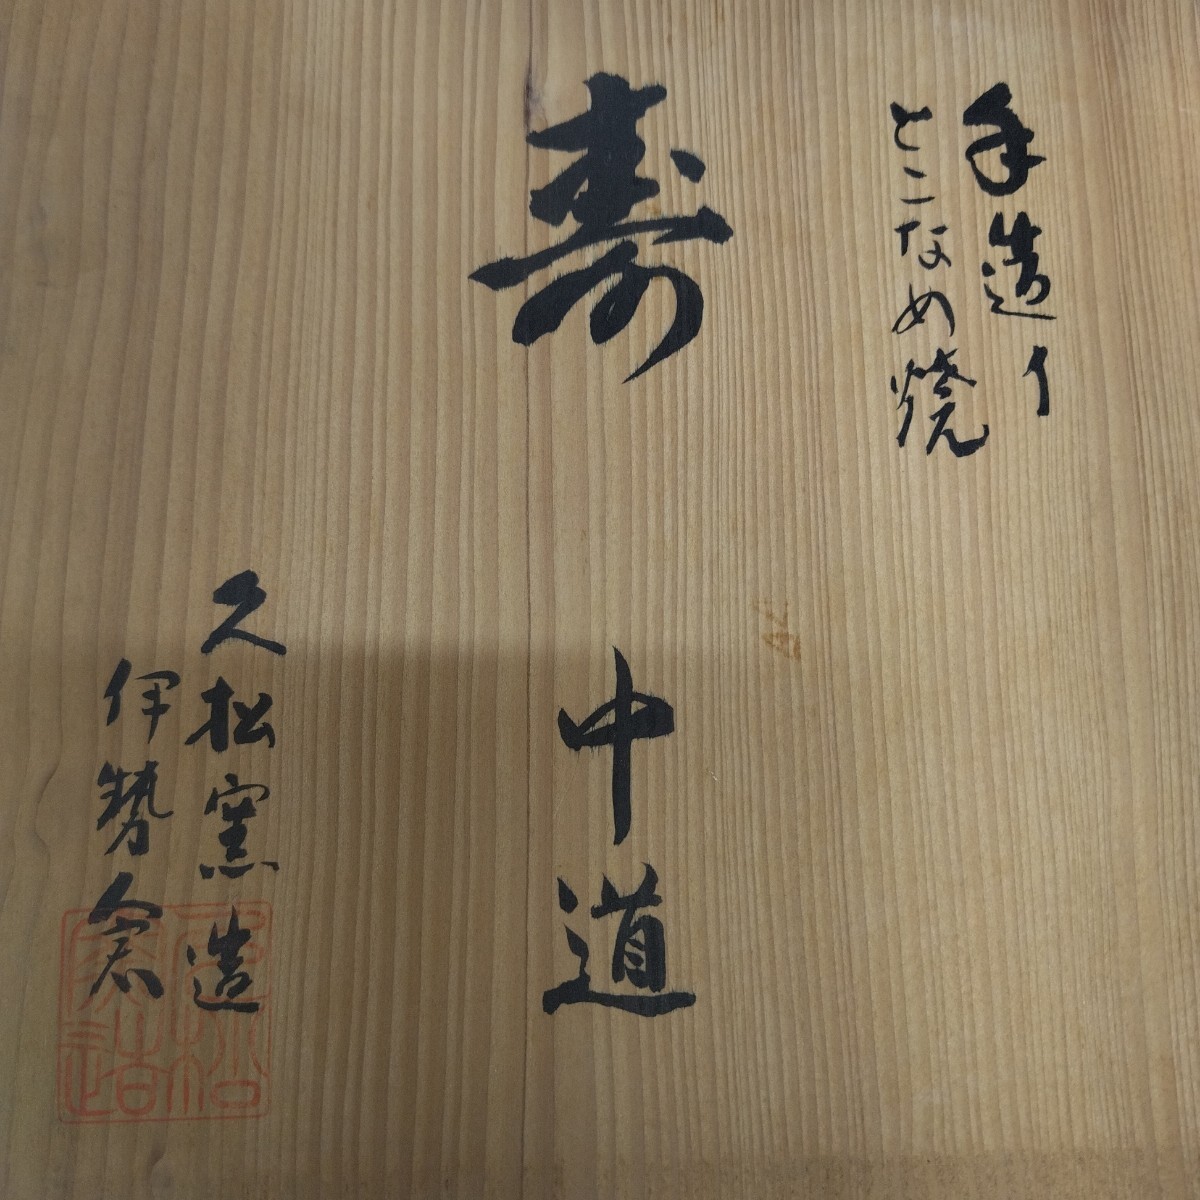 手造り
とこなめ焼
寿
中道
久松窯造
伊勢倉